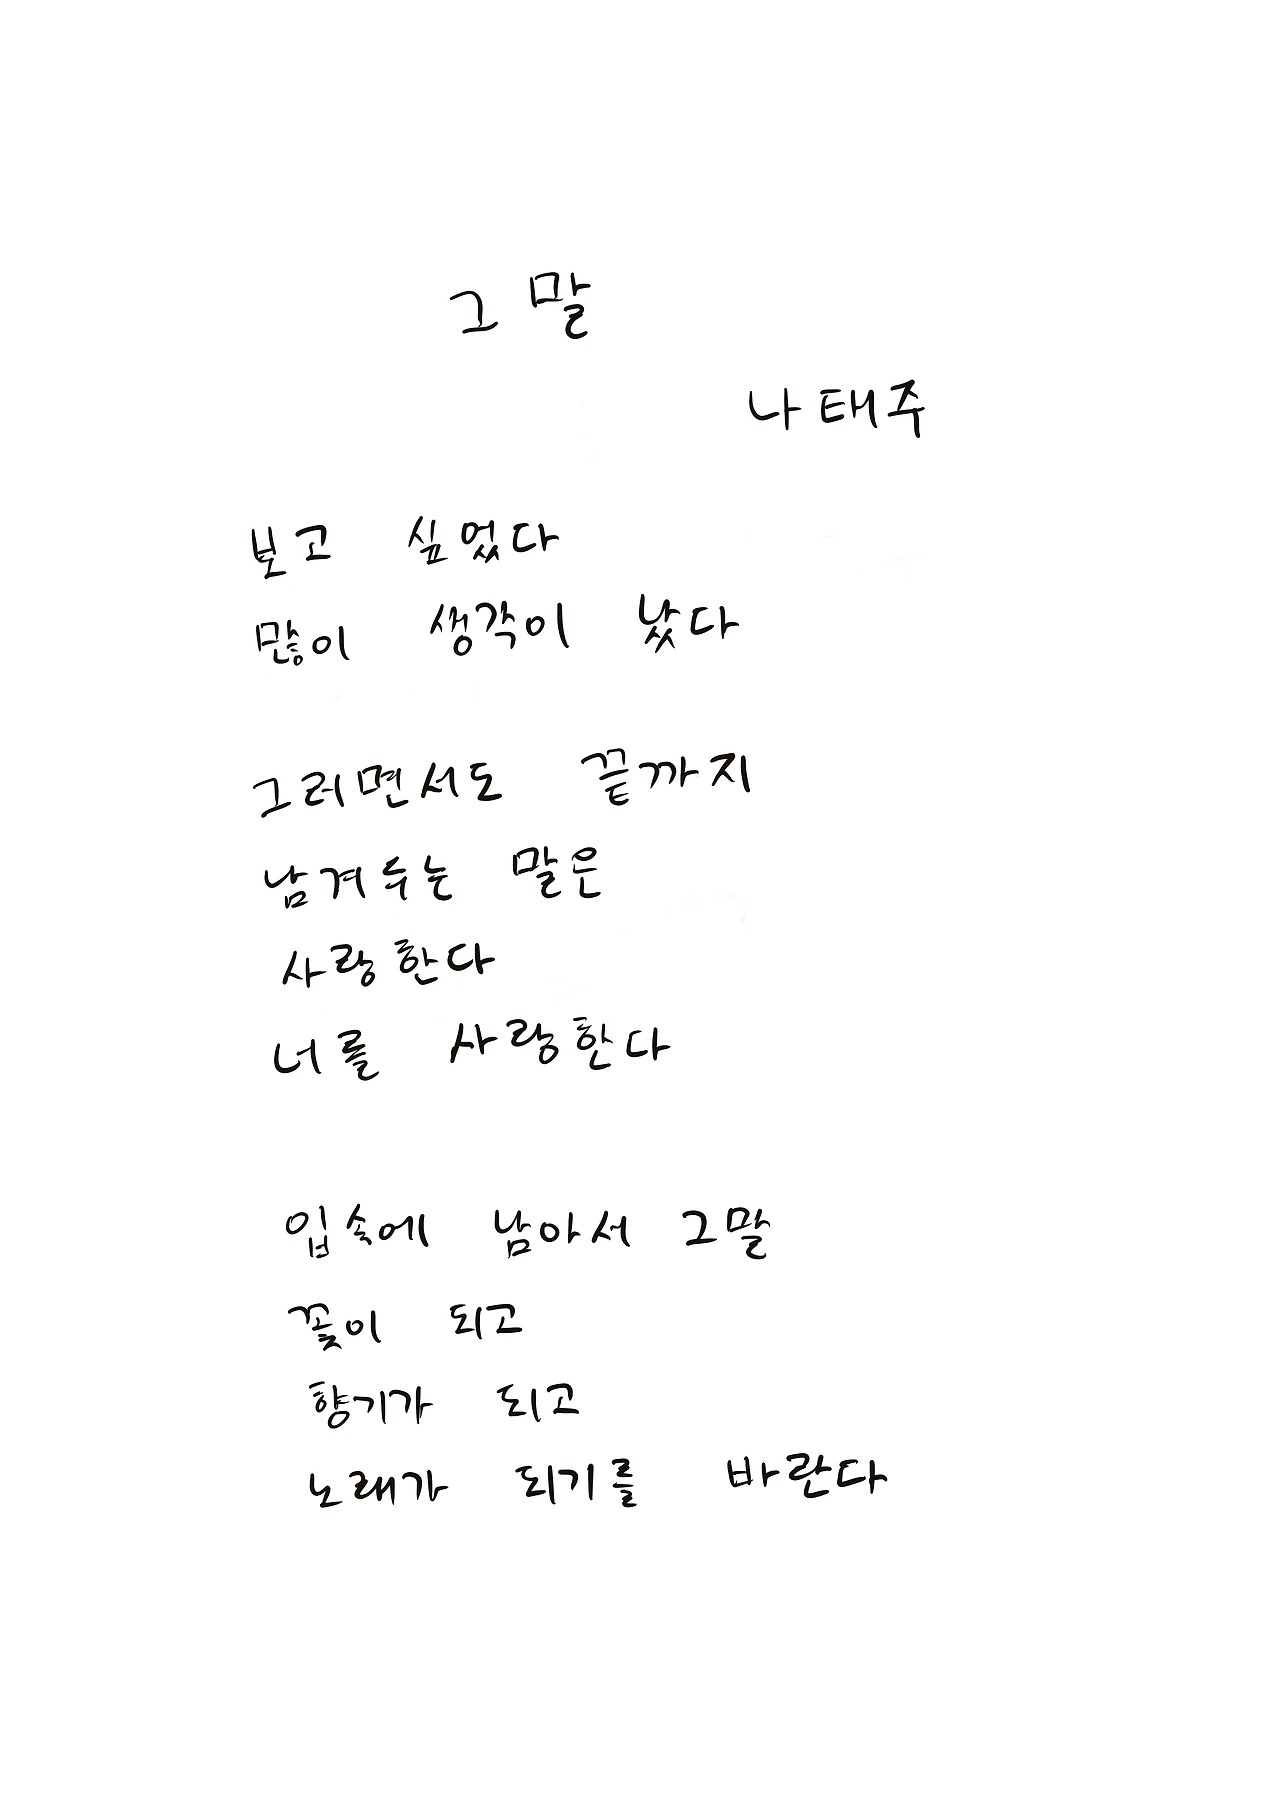 그 말
나태주
보고 싶었다
많이 생각이 났다
그러면서도 끝까지
남겨두는 말은
사랑한다
너를 사랑한다
입속에 남아서 그말
꽃이 되고
향기가 되고
노래가 되기를 바란다